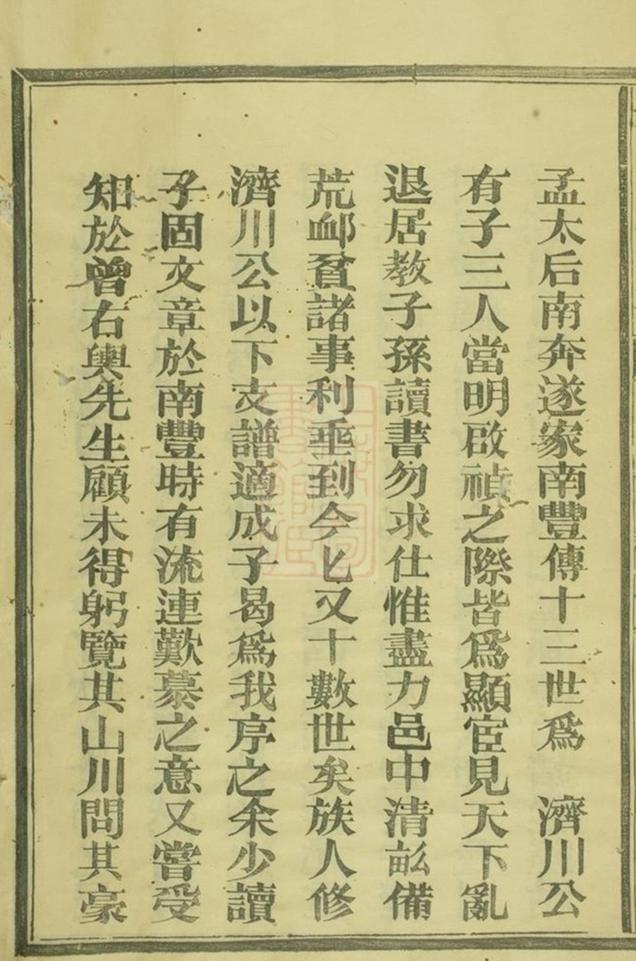 孟太后南奔遂家南豐傳十三世爲　濟川公
有子三人當明啟禎之際皆爲顯宦見天下亂
退居教子孫讀書勿求仕惟盡力邑中清畝備
荒卹貧諸事利垂到今匕又十數世矣族人修
濟川公以下支譜適成子曷爲我序之余少讀
子固文章於南豐時有流連歎慕之意又嘗受
知於曾右輿先生顧未得躬覽其山川問其豪